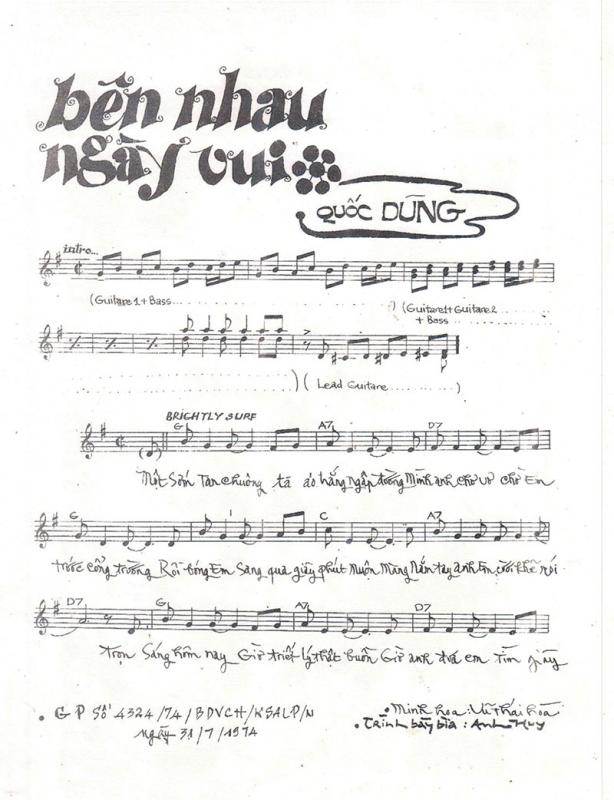 bên nhau
ngày vui
QUỐC DŨNG
intro...
(Guitare 1 + Bass............) (Guitare1+Guitare 2........
+ Bass..........
............) ( Lead Guitare..........)
BRIGHTLY SURF
G A7 D7
Một Sớm Tan chuông tà áo trắng ngập đường Mình anh chờ chờ Em
G C A7
trước cổng trường Rồi bóng Em Sang qua giây phút Muộn Màng Nắm tay anh Em cười khẽ nói
D7 G A7 D7
trọn Sáng hôm nay Giờ triết lý thật buồn Giờ anh đưa em Tìm
• G P Số 4324/74/BDVCH/KSALP/N
ngày 31/7/1974
• Minh họa : Vũ Thái Hòa
• Trình bầy bìa : Anh Huy